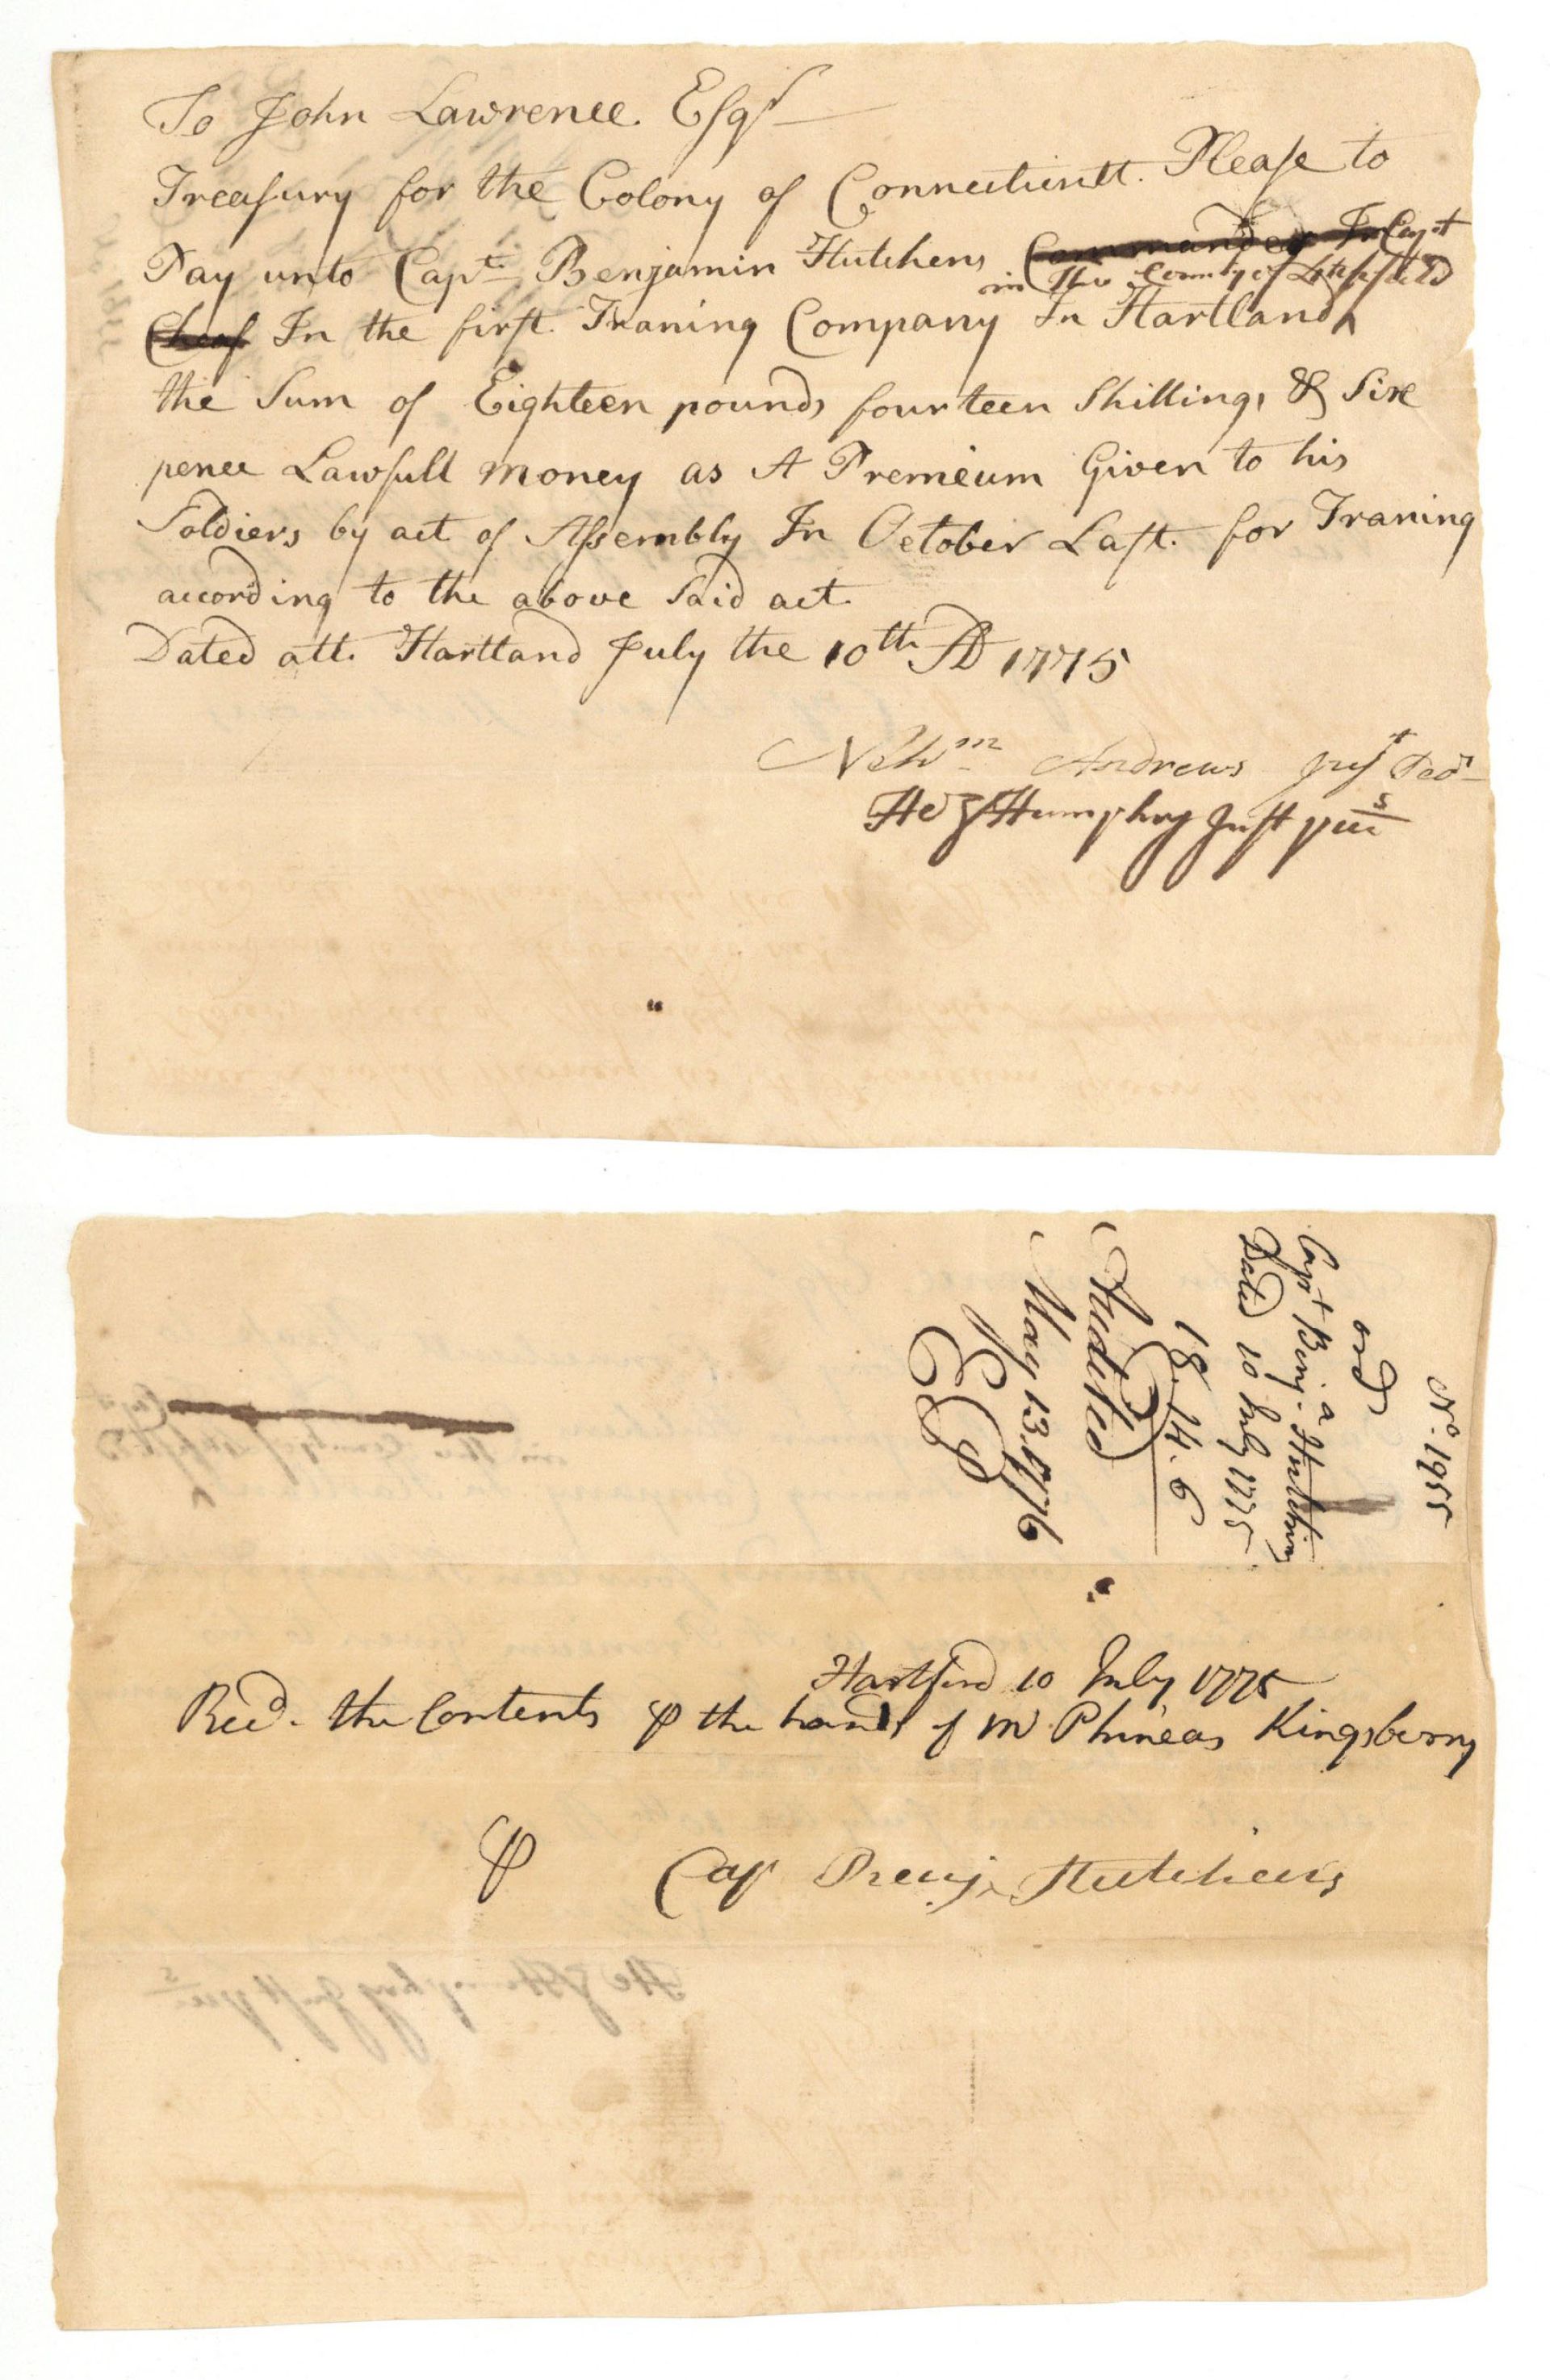 To John Lawrence Esqr
Treasury for the Colony of Connecticutt. Please to
Pay unto Capt Benjamin Hutchens Commander In Capt
in the County of Litchfield
Cheaf In the first Traning Company In Hartland ^
the Sum of Eighteen pounds fourteen Shillings & Six
pence Lawfull money as A Premeium Given to his
Soldiers by act of Assembly In October Last. for Traning
according to the above Said act.
Dated att Hartland July the 10th AD 1775
Nehm Andrews Just
Hez Humphry Just pces
No. 1955
ord
Capt Benja Hutchins
Dated 10 July 1775
18.14.6
Audited
May 13. 1776
Hartford 10 July 1775
Recd. the Contents ⅌ the hands of Mr Phineas Kingsberry
⅌ Cap Benj Hutchens